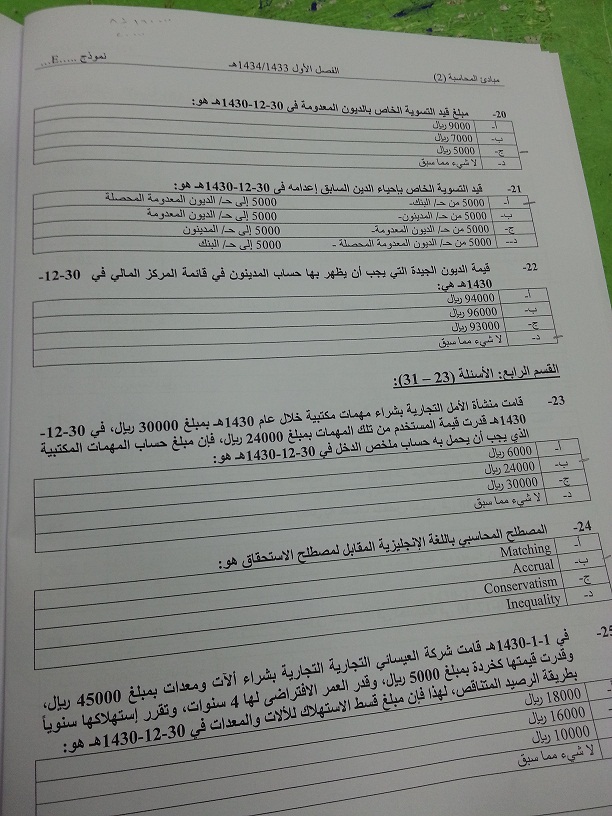 مبادئ المحاسبة (2) الفصل الأول 1434/1433هـ نموذج .....E...
20- مبلغ قيد التسوية الخاص بالديون المعدومة في 30-12-1430هـ هو:
أ- 9000 ريال
ب- 7000 ريال
ج- 5000 ريال
د- لا شيء مما سبق
21- قيد التسوية الخاص بإحياء الدين السابق إعدامه في 30-12-1430هـ هو:
أ- 5000 من حـ/ البنك- 5000 إلى حـ/ الديون المعدومة المحصلة
ب- 5000 من حـ/ المدينون- 5000 إلى حـ/ الديون المعدومة
ج- 5000 من حـ/ الديون المعدومة- 5000 إلى حـ/ المدينون
د- 5000 من حـ/ الديون المعدومة المحصلة - 5000 إلى حـ/ البنك
22- قيمة الديون الجيدة التي يجب أن يظهر بها حساب المدينون في قائمة المركز المالي في 30-12-
1430هـ هي:
أ- 94000 ريال
ب- 96000 ريال
ج- 93000 ريال
د- لا شيء مما سبق
القسم الرابع: الأسئلة (23 – 31):
23- قامت منشأة الأمل التجارية بشراء مهمات مكتبية خلال عام 1430هـ بمبلغ 30000 ريال، في 30-12-
1430هـ قدرت قيمة المستخدم من تلك المهمات بمبلغ 24000 ريال، فإن مبلغ حساب المهمات المكتبية
الذي يجب أن يحمل به حساب ملخص الدخل في 30-12-1430هـ هو:
أ- 6000 ريال
ب- 24000 ريال
ج- 30000 ريال
د- لا شيء مما سبق
24- المصطلح المحاسبي باللغة الإنجليزية المقابل لمصطلح الاستحقاق هو:
أ- Matching
ب- Accrual
ج- Conservatism
د- Inequality
25- في 1-1-1430هـ قامت شركة العيسائي التجارية التجارية بشراء آلات ومعدات بمبلغ 45000 ريال،
وقدرت قيمتها كخردة بمبلغ 5000 ريال، وقدر العمر الافتراضي لها 4 سنوات، وتقرر إستهلاكها سنوياً
بطريقة الرصيد المتناقص، لهذا فإن مبلغ قسط الاستهلاك للآلات والمعدات في 30-12-1430هـ هو:
18000 ريال
16000 ريال
10000 ريال
لا شيء مما سبق